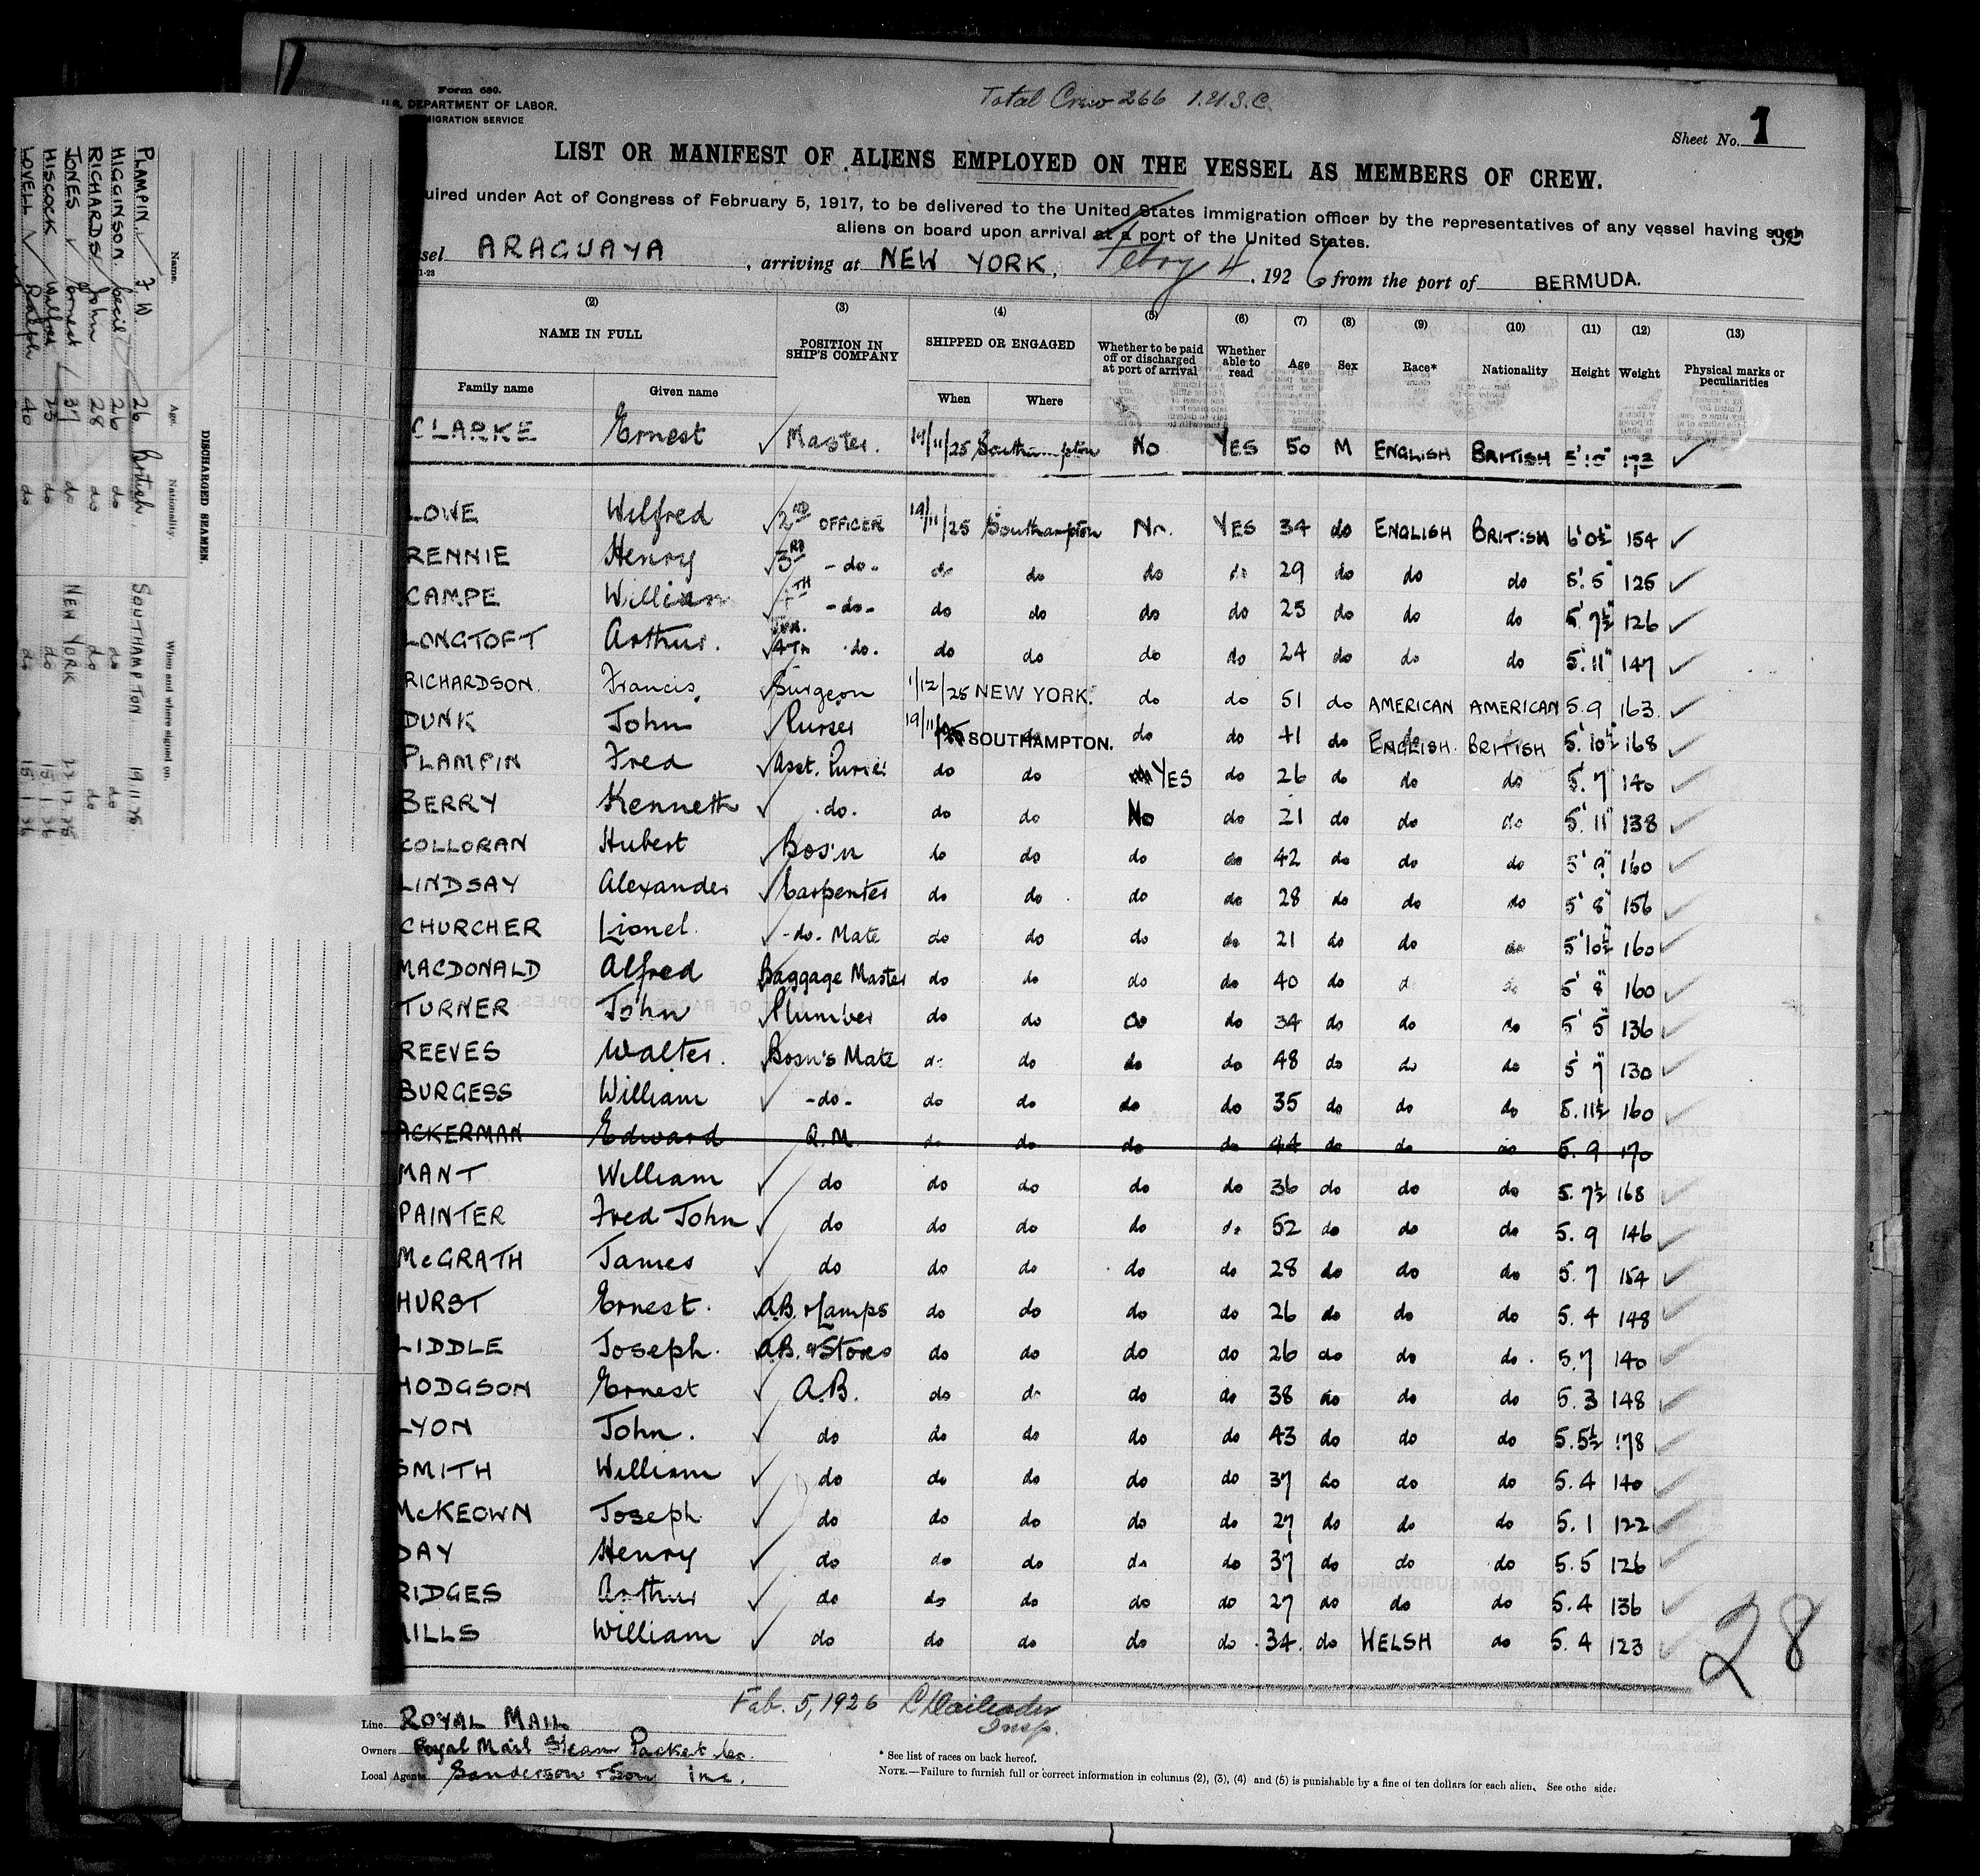 Form 680.
U.S. DEPARTMENT OF LABOR.
MIGRATION SERVICE
Total Crew 266 1.U.S.C.
Sheet No. 1
LIST OR MANIFEST OF ALIENS EMPLOYED ON THE VESSEL AS MEMBERS OF CREW.
uired under Act of Congress of February 5, 1917, to be delivered to the United States immigration officer by the representatives of any vessel having such
aliens on board upon arrival at a port of the United States.
sel ARAGUAYA, arriving at NEW YORK, Febry 4, 1926 from the port of BERMUDA.
(2) (3) (4) (5) (6) (7) (8) (9) (10) (11) (12) (13)
NAME IN FULL POSITION IN SHIP'S COMPANY SHIPPED OR ENGAGED Whether to be paid off or discharged at port of arrival Whether able to read Age Sex Race* Nationality Height Weight Physical marks or peculiarities
Family name Given name When Where
CLARKE Ernest ✓ Master. 19/11/25 Southampton No YES 50 M ENGLISH BRITISH 5'10" 173 ✓
LOWE Wilfred ✓ 2ND OFFICER 19/11/25 Southampton No. YES 34 do ENGLISH BRITISH 6'0½ 154 ✓
RENNIE Henry ✓ 3RD -do- do do do do 29 do do do 5'.5" 125 ✓
CAMPE William ✓ 4TH -do- do do do do 25 do do do 5'.7½" 126 ✓
LONGTOFT Arthur. ✓ JUN. 4TH .do. do do do do 24 do do do 5'.11" 147 ✓
RICHARDSON. Francis, ✓ Surgeon 1/12/25 NEW YORK. do do 51 do AMERICAN AMERICAN 5.9 163. ✓
DUNK John ✓ Purser 19/11/25 SOUTHAMPTON. do do 41 do ENGLISH. BRITISH 5'.10½ 168 ✓
PLAMPIN Fred ✓ Asst. Purser do do YES do 26 do do do 5'.7 140 ✓
BERRY Kenneth ✓ .do. do do No do 21 do do do 5'.11" 138 ✓
COLLORAN Hubert ✓ Bos'n do do do do 42 do do do 5'9" 160 ✓
LINDSAY Alexander ✓ Carpenter do do do do 28 do do do 5'8" 156 ✓
CHURCHER Lionel. ✓ -do- Mate do do do do 21 do do do 5'10½" 160 ✓
MACDONALD Alfred Baggage Master do do do do 40 do do do 5'8" 160 ✓
TURNER John ✓ Plumber do do do do 34 do do do 5'5" 136 ✓
REEVES Walter. ✓ Bosn's Mate do do do do 48 do do do 5'7" 130 ✓
BURGESS William ✓ -do- do do do do 35 do do do 5.11½ 160 ✓
ACKERMAN Edward Q.M. do do do do 44 do do do 5.9 170
MANT William ✓ do do do do do 36 do do do 5.7½ 168 ✓
PAINTER Fred John ✓ do do do do do 52 do do do 5.9 146 ✓
McGRATH James ✓ do do do do do 28 do do do 5.7 154 ✓
HURST Ernest. A.B. & Lamps do do do do 26 do do do 5.4 148 ✓
LIDDLE Joseph. A.B. & Stores do do do do 26 do do do. 5.7 140 ✓
HODGSON Ernest ✓ A.B. do do do do 38 do do do 5.3 148 ✓
LYON John. ✓ do do do do do 43 do do do 5.5½ 178 ✓
SMITH William ✓ do do do do do 37 do do do 5.4 140 ✓
McKEOWN Joseph ✓ do do do do do 27 do do do 5.1 122 ✓
DAY Henry ✓ do do do do do 37 do do do 5.5 126 ✓
RIDGES Arthur ✓ do do do do do 27 do do do 5.4 136 ✓
ILLS William ✓ do do do do do 34. do WELSH do 5.4 123 ✓
28
Feb. 5, 1926
Insp.
Line ROYAL MAIL
Owners Royal Mail Steam Packet Co.
Local Agents Sanderson & Son Inc.
* See list of races on back hereof.
NOTE.—Failure to furnish full or correct information in columns (2), (3), (4) and (5) is punishable by a fine of ten dollars for each alien. See othe side.
DISCHARGED SEAMEN.
Name. Age. Nationality When and where signed on
PLAMPIN ✓ F.W. 26 British, SOUTHAMPTON 19.11.25
HIGGINSON. Cecil 26 do do do
RICHARDS John 28 do do do
JONES ✓ Ernest 37 do NEW YORK
HISCOCK Wilfred 25 do do
LOVELL ✓ Ralph 40 do do